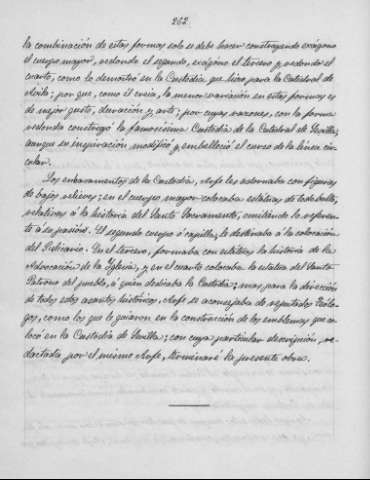 262.
la combinación de estas formas solo se debe hacer construyendo exágono
el cuerpo mayor, redondo el segundo, exágono el tercero y redondo el
cuarto, como lo demostró en la Custodia que hizo para la Catedral de
Avila; por que, como él creia, la menor variacion en estas formas es
de mejor gusto, duración y arte; por cuyas razones, con la forma
redonda construyó la famosísima Custodia de la Catedral de Sevilla,
aunque su inspiración modificó y embelleció el curso de la linea cir-
cular.
Los embasamentos de la Custodia, Arfe les adornaba con figuras
de bajos relieves; en el cuerpo mayor colocaba estatuas de todo bulto,
relativas á la historia del Santo Sacramento, omitiendo lo referen-
te á su pasión. El segundo cuerpo ó capilla, lo destinaba á la colocación
del Relicario. En el tercero, formaba con estatuas la historia de la
Advocación de la Yglesia, y en el cuarto colocaba la estatua del Santo
Patrono del pueblo, á quien dedicaba la Custodia; mas para la dirección
de todos estos asuntos históricos, Arfe se aconsejaba de reputados Teólo-
gos, como los que le guiaron en la construcción de los emblemas que co-
locó en la Custodia de Sevilla; con cuya particular descripción, re-
dactada por el mismo Arfe, terminaré la presente obra.